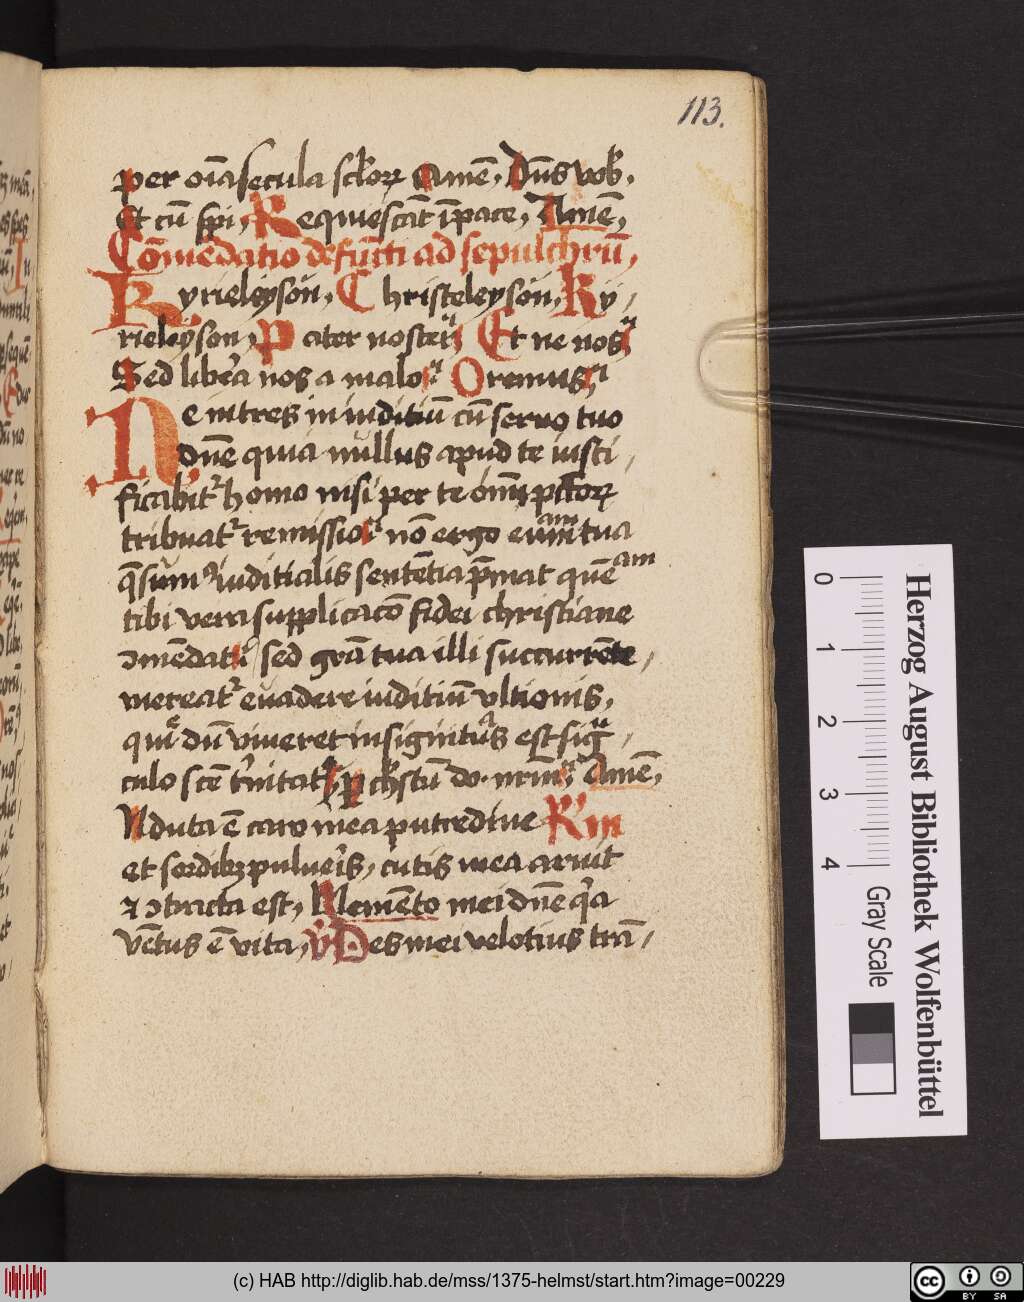 113.
per oīa secula sclorꝝ Amē, Dn̄s vob.
Et cū spū, Requiescāt ī pace, Amē,
Cōmēdatio defūcti ad sepulchrū,
Kyrieleyson, Christeleyson, Ky/
rieleyson, Pater noster, Et ne nos
Sed libera nos a malo Oremus
Ne intres in iuditiū cū servo tuo
dn̄e quia nullus apud te iusti/
ficabit᷑ homo nisi per te om̄ pctorꝝ
tribuat᷑ remissio nō ergo eum am tua
q̄sum᷒ iuditialis sentētia p̄mat quē am
tibi vera supplicacō fidei christiane
ↄmēdat sed grā tua illi succurrēte/
mereat᷑ evadere iuditiū vltionis,
qui dū viveret insignitus est sig/
culo scē trinitat ꝑ chrstū do. nrm Amē,
Nduta ē caro mea putredine Rm
et sordibꝫ pulveris, cutis mea aruit
⁊ ↄtracta est, Memēto mei dn̄e qa
vētus ē vita, V Des mei velotius trā/
Herzog August Bibliothek Wolfenbüttel
Gray Scale
0 1 2 3 4
(c) HAB http://diglib.hab.de/mss/1375-helmst/start.htm?image=00229
cc BY SA